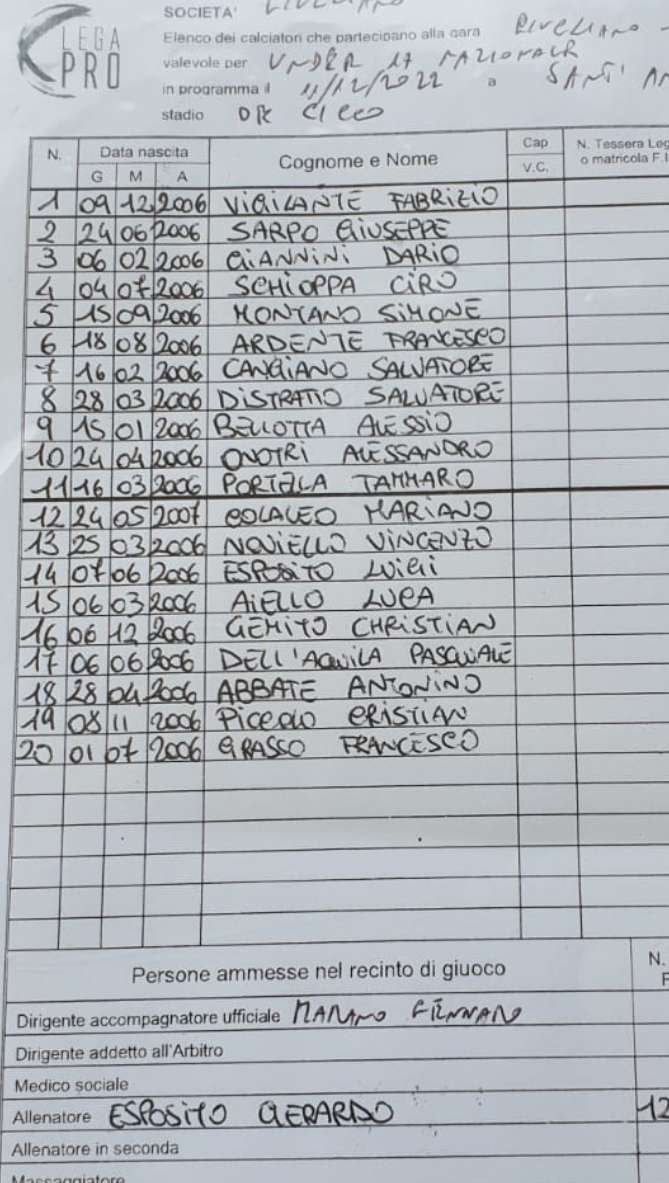 LEGA PRO
SOCIETA'
Elenco dei calciatori che partecipano alla gara
valevole per UNDER 17 NAZIONALE
in programma il 11/12/2022 a SANT' AN
stadio DE CICCO
N. Data nascita Cognome e Nome Cap N. Tessera Leg
G M A V.C. o matricola F.I
1 09 12 2006 VIGILANTE FABRIZIO
2 24 06 2006 SARPO GIUSEPPE
3 06 02 2006 GIANNINI DARIO
4 04 07 2006 SCHIOPPA CIRO
5 15 09 2006 MONTANO SIMONE
6 18 08 2006 ARDENTE FRANCESCO
7 16 02 2006 CANGIANO SALVATORE
8 28 03 2006 DISTRATIO SALVATORE
9 15 01 2006 BELLOTTA ALESSIO
10 24 04 2006 ONOTRI ALESSANDRO
11 16 03 2006 PORTELLA TAMMARO
12 24 05 2007 COLALEO MARIANO
13 25 03 2006 NOVIELLO VINCENZO
14 07 06 2006 ESPOSITO LUIGI
15 06 03 2006 AIELLO LUCA
16 06 12 2006 GEMITO CHRISTIAN
17 06 06 2006 DELL'AQUILA PASQUALE
18 28 04 2006 ABBATE ANTONINO
19 08 11 2006 PICCOLO CRISTIAN
20 01 07 2006 GRASSO FRANCESCO
Persone ammesse nel recinto di giuoco N.
Dirigente accompagnatore ufficiale MARANO GENNARO
Dirigente addetto all'Arbitro
Medico sociale
Allenatore ESPOSITO GERARDO 12
Allenatore in seconda
Massaggiatore